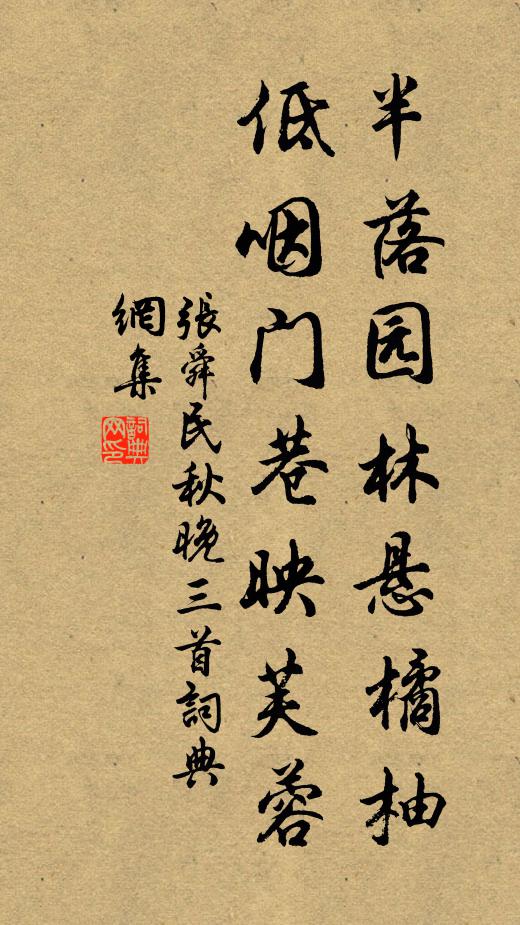 半落园林悬橘柚
低咽门巷映芙蓉
張舜民秋晚三首詞典
網集
詞典網印